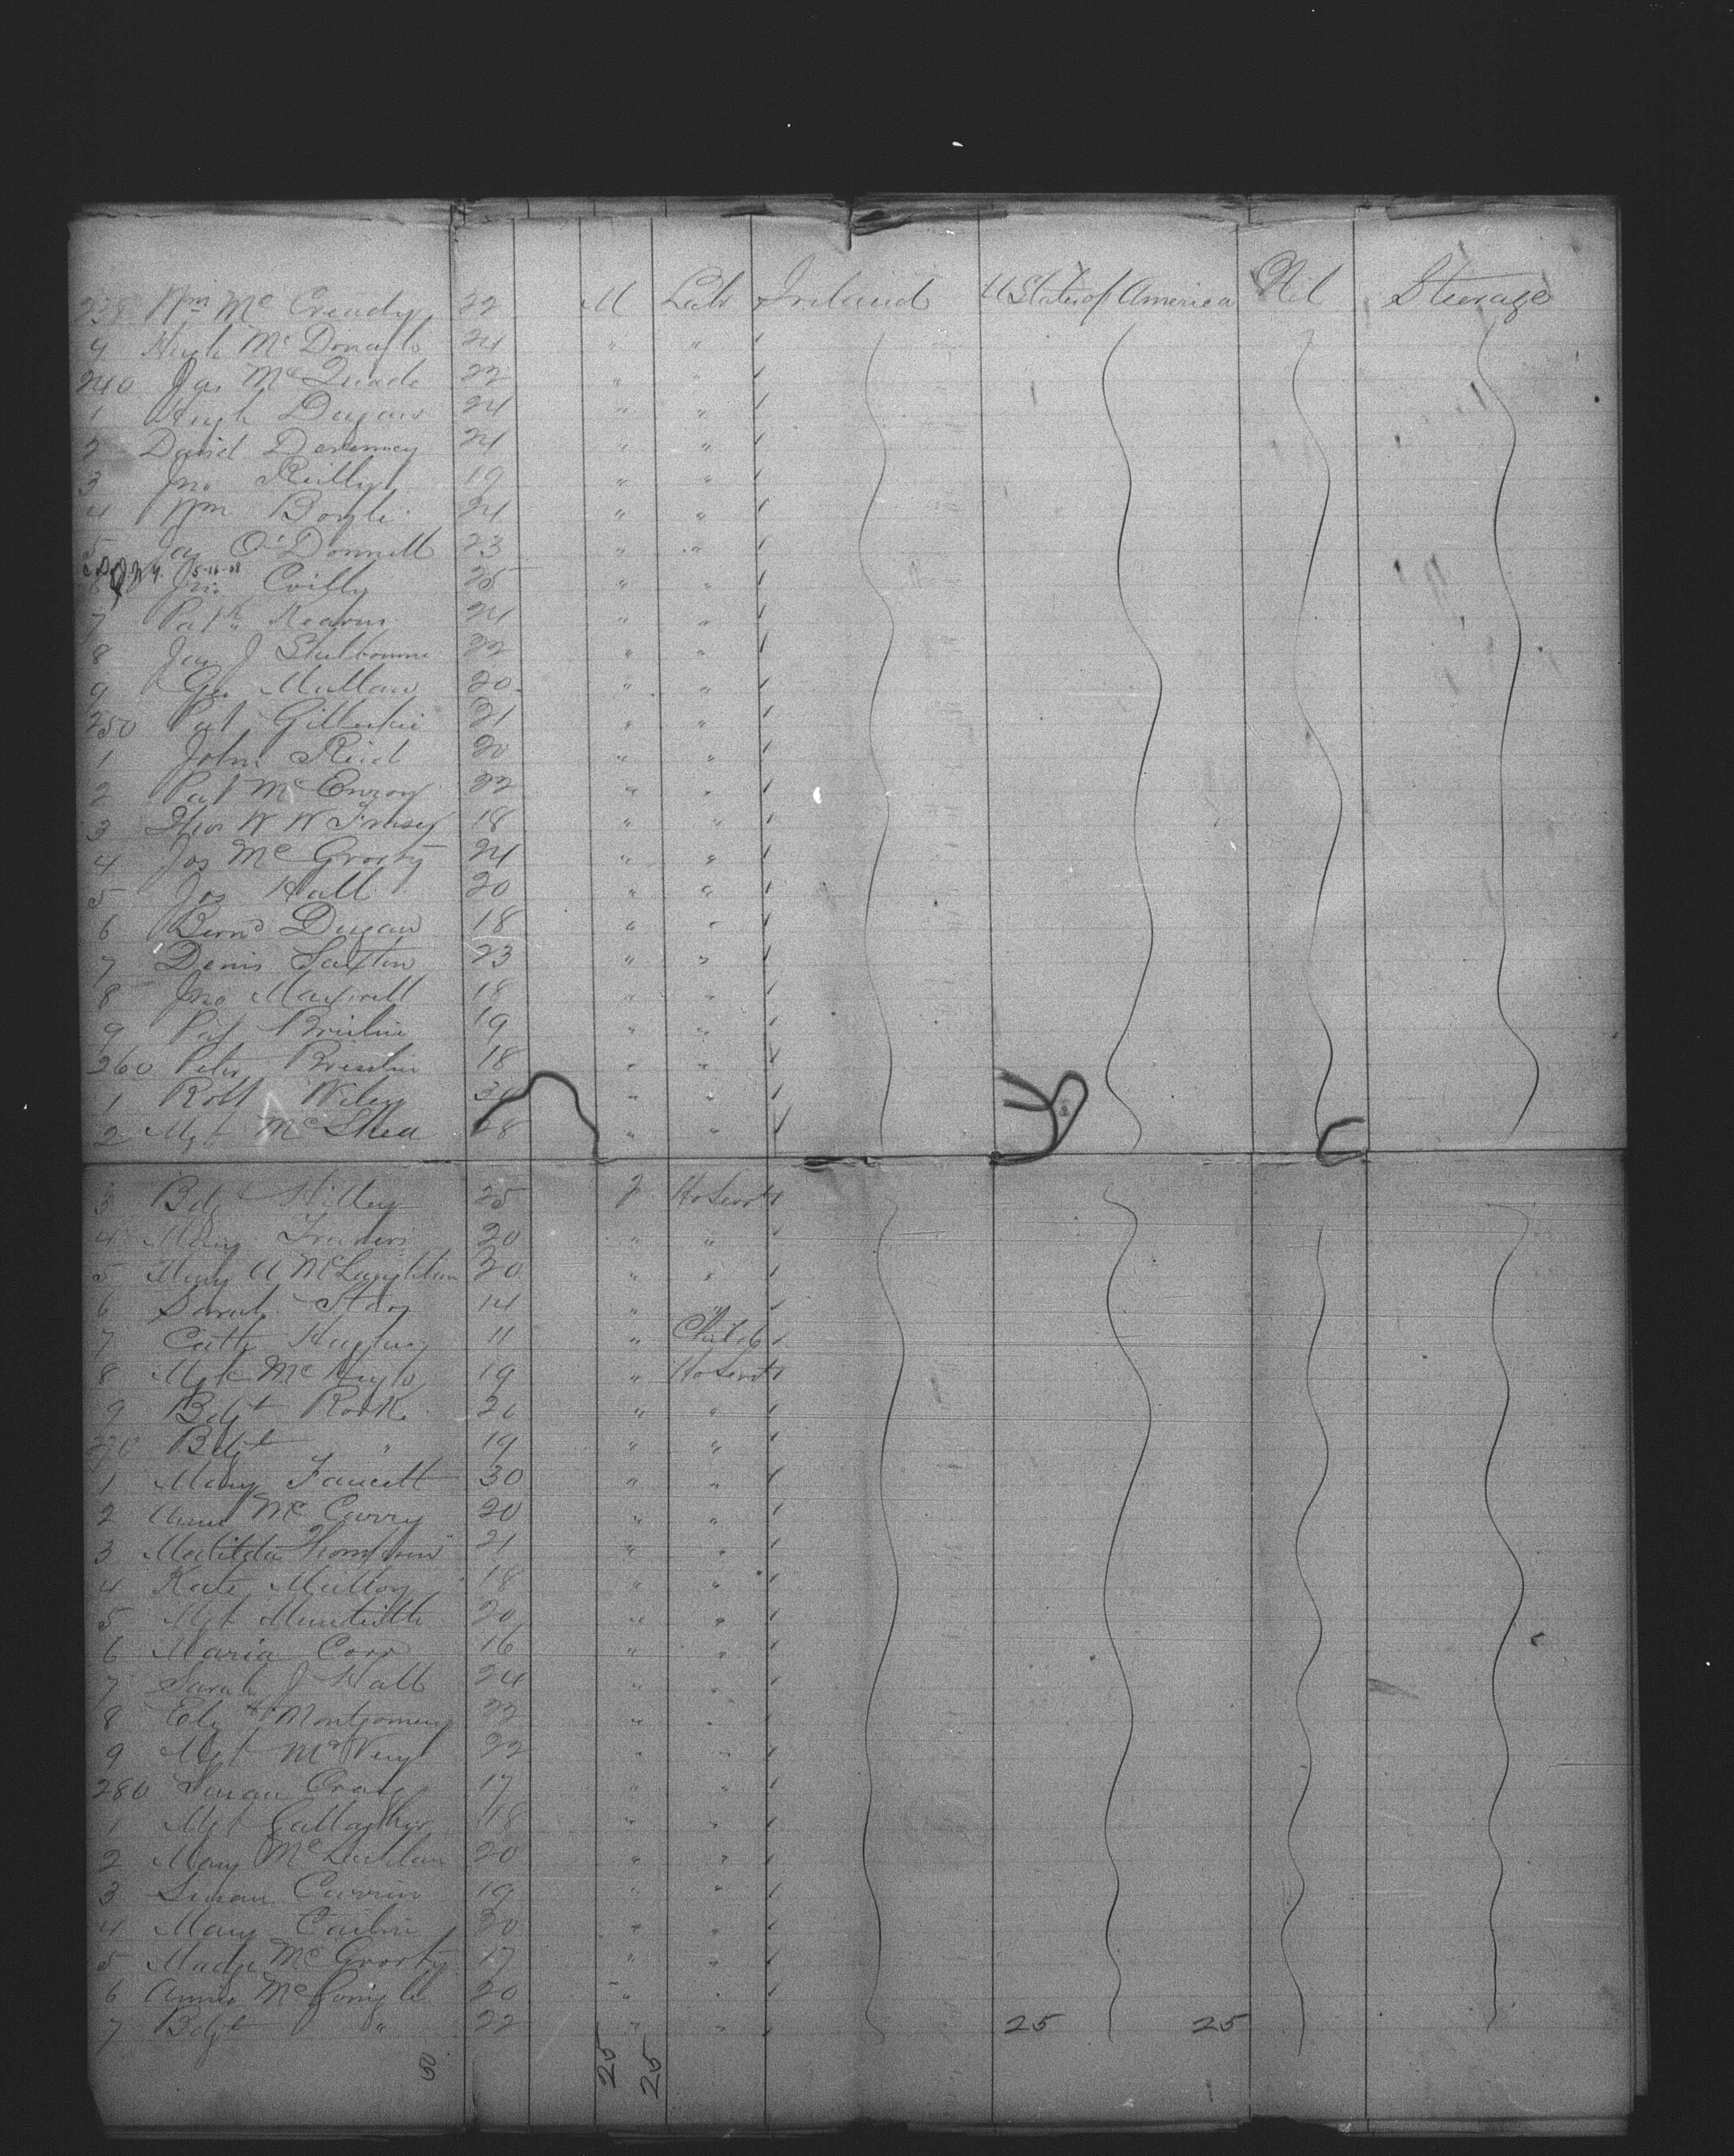 238 Wm Mc Cready 22 M Labr Ireland U States of America Nil Steerage
9 Hugh Mc Donagh 24 " "
240 Jas Mc Quade 22 " "
1 Hugh Dugan 24 " "
2 David Devenney 24 " "
3 Jno Reilly 19 " "
4 Wm Boyle 24 " "
5 Jas O'Donnell 23 " "
6 Jno 25 " "
7 Patk Kearns 24 " "
8 Jas J Shelbourne 22 " "
9 Geo Mullan 20 " "
250 Pat 21 " "
1 John Reid 20 " "
2 Pat Mc Enroy 22 " "
3 Thos W W 18 " "
4 Jos Mc Grorty 24 " "
5 Jos Hall 20 " "
6 Bernd Dugan 18 " "
7 Denis Saxton 23 " "
8 Jno Maxwell 18 " "
9 Pat Breslin 19 " "
260 Peter Breslin 18 " "
1 Robt Wiley " "
2 Mgt Mc Shea 28 " "
3 Bdgt 25 F Ho Servt
4 Mary 20 " "
5 Mary A McLaughlan 20 " "
6 Sarah 14 " "
7 Cath 11 " Child
8 Mgt Mc 19 " Ho Servt
9 Bdgt Rork " "
270 Bdgt " 19 " "
1 Mary Faucett 30 " "
2 Anne Mc Curry 20 " "
3 Matilda Thompson 21 " "
4 Kate Malloy 18 " "
5 Mgt 20 " "
6 Maria Corr 16 " "
7 Sarah J Hall 24 " "
8 Elizth Montgomery 22 " "
9 Mgt Mc 22 " "
280 Susan Craig 17 " "
1 Mgt Gallagher 18 " "
2 Mary Mc 20 " "
3 Susan Curran 19 " "
4 Mary Carlin 30 " "
5 Madge Mc Grorty 17 " "
6 Annie McGonigle 20 " "
7 Bdgt " 22 " " 25 25
25 25